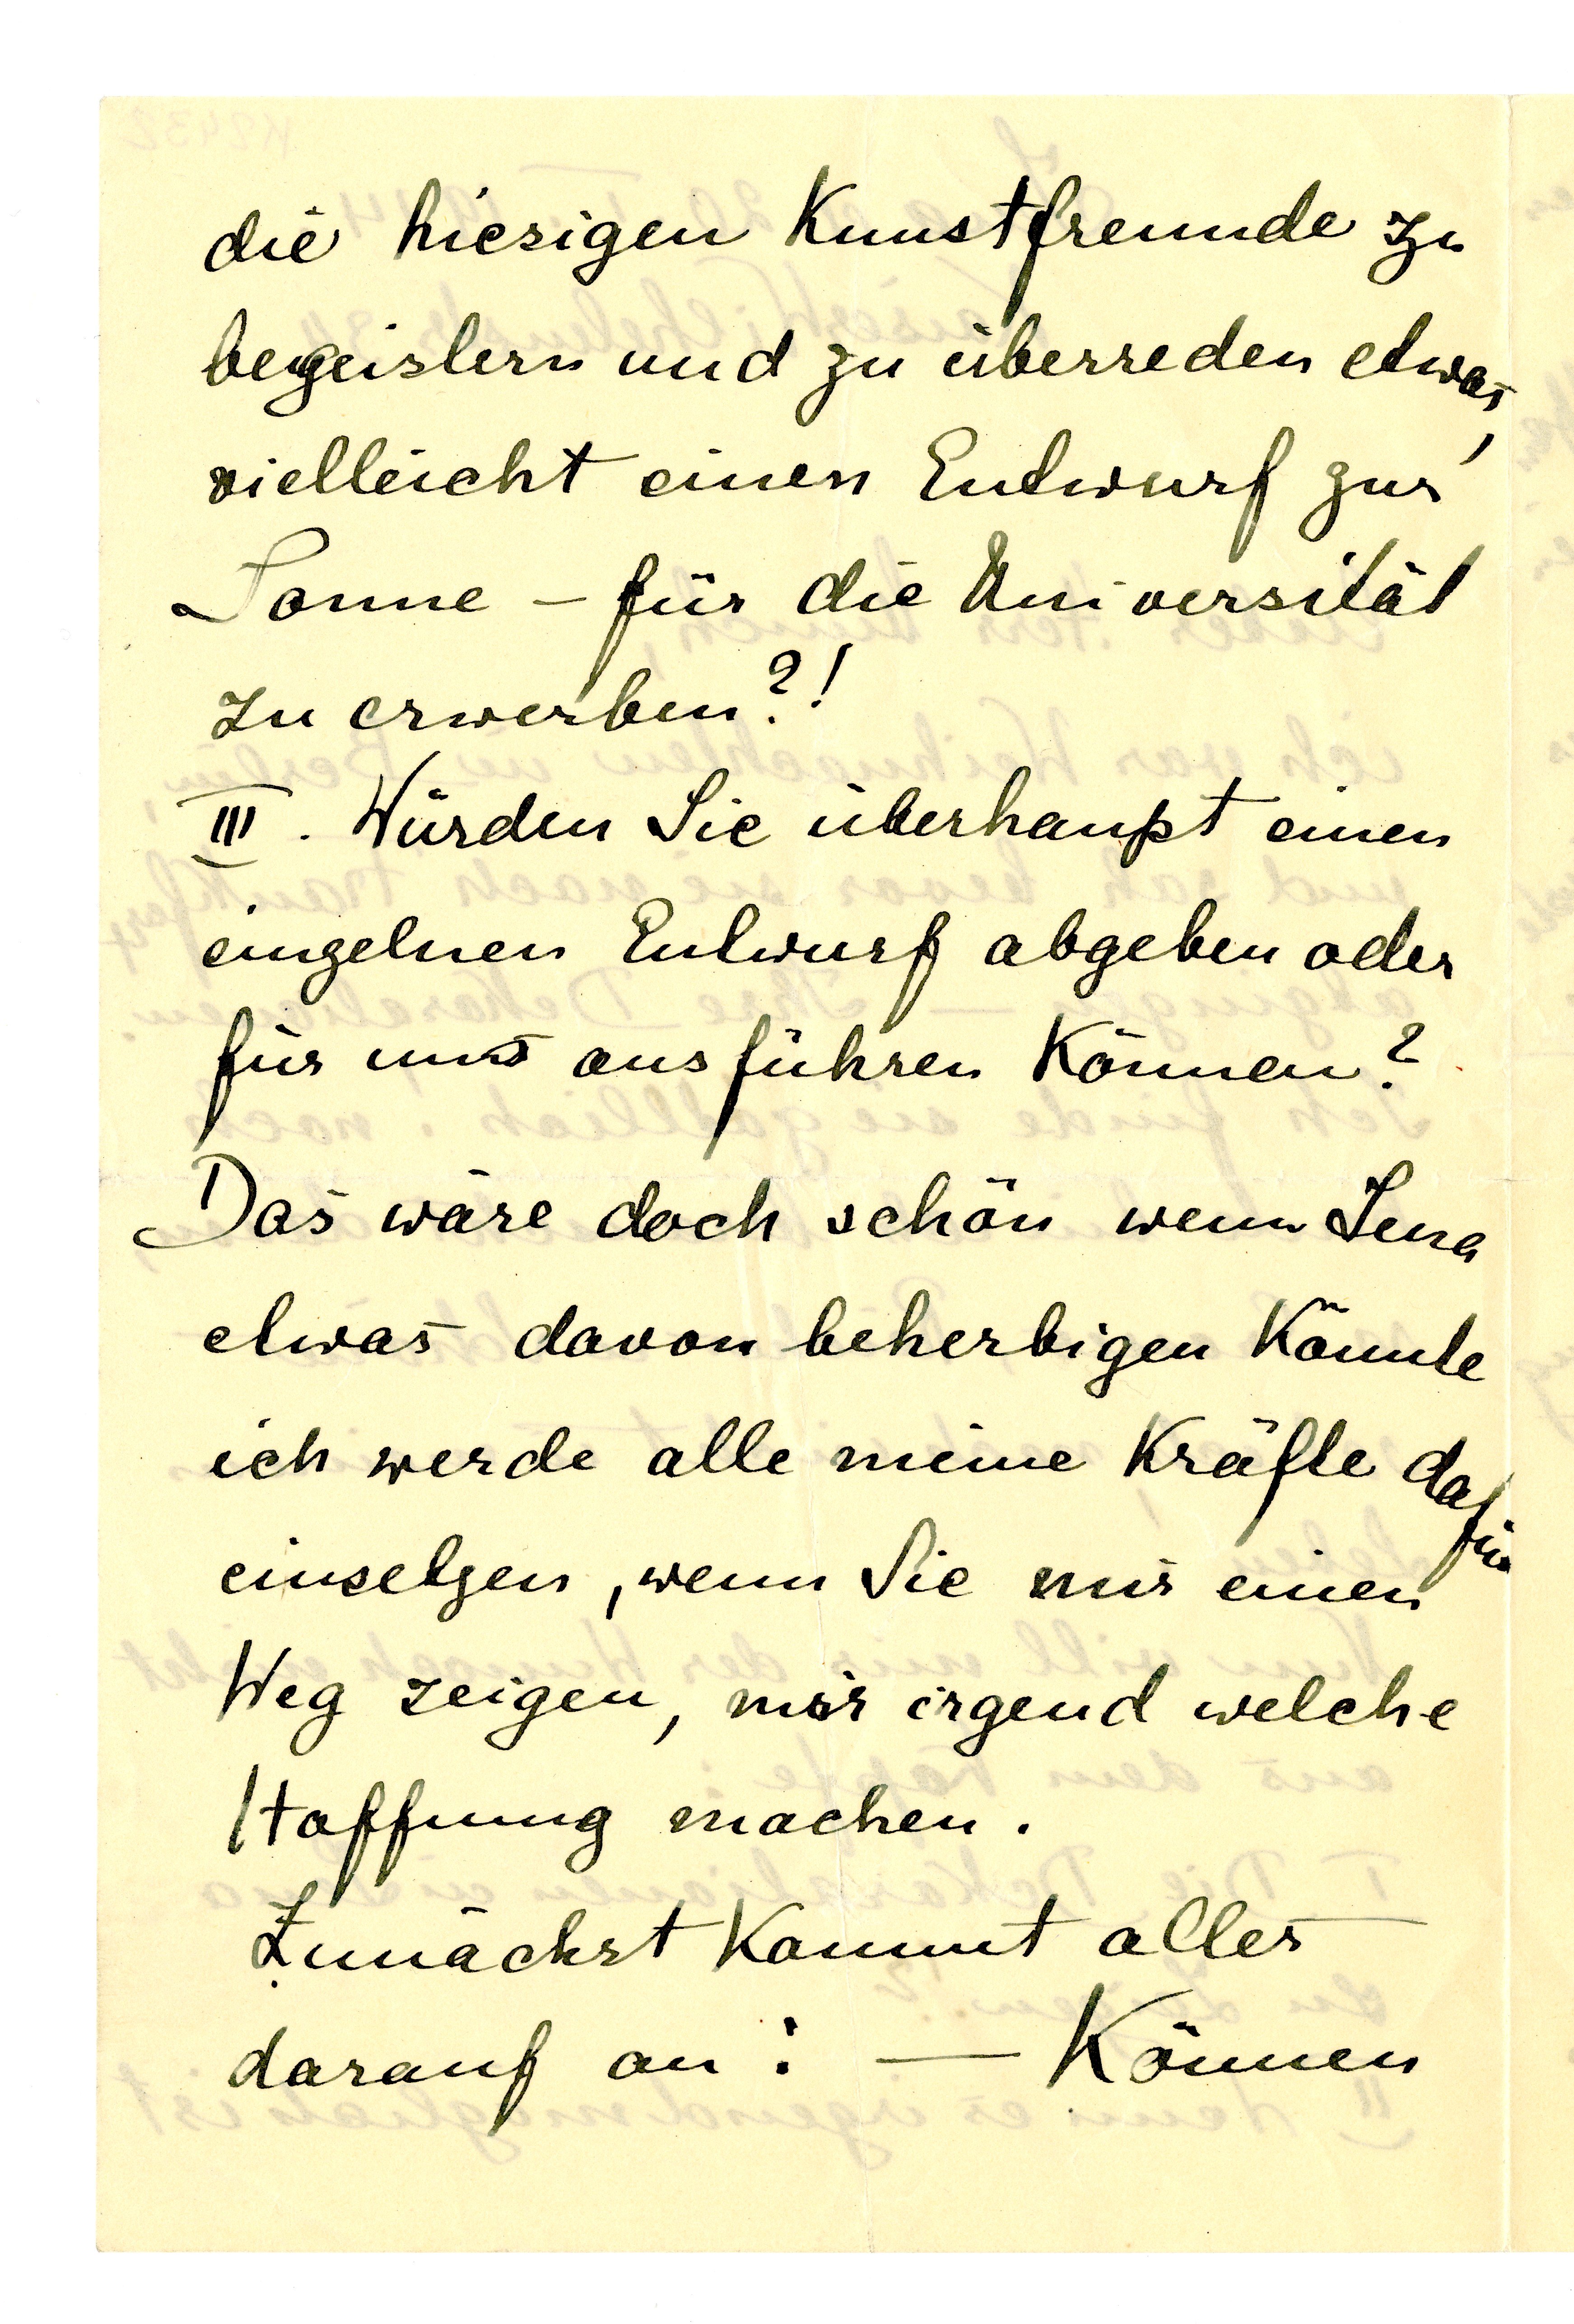 die hiesigen Kunstfreunde zu
begeistern und zu überreden etwas,
vielleicht einen Entwurf zur
Sonne – für die Universität
zu erwerben?!
III. Würden Sie überhaupt einen
einzelnen Entwurf abgeben oder
für uns ausführen können?
Das wäre doch schön wenn Jena
etwas davon beherbigen könnte
ich werde alle meine Kräfte dafür
einsetzen, wenn Sie mir einen
Weg zeigen, mir irgend welche
Hoffnung machen.
Zunächst kommt alles
darauf an: — Können